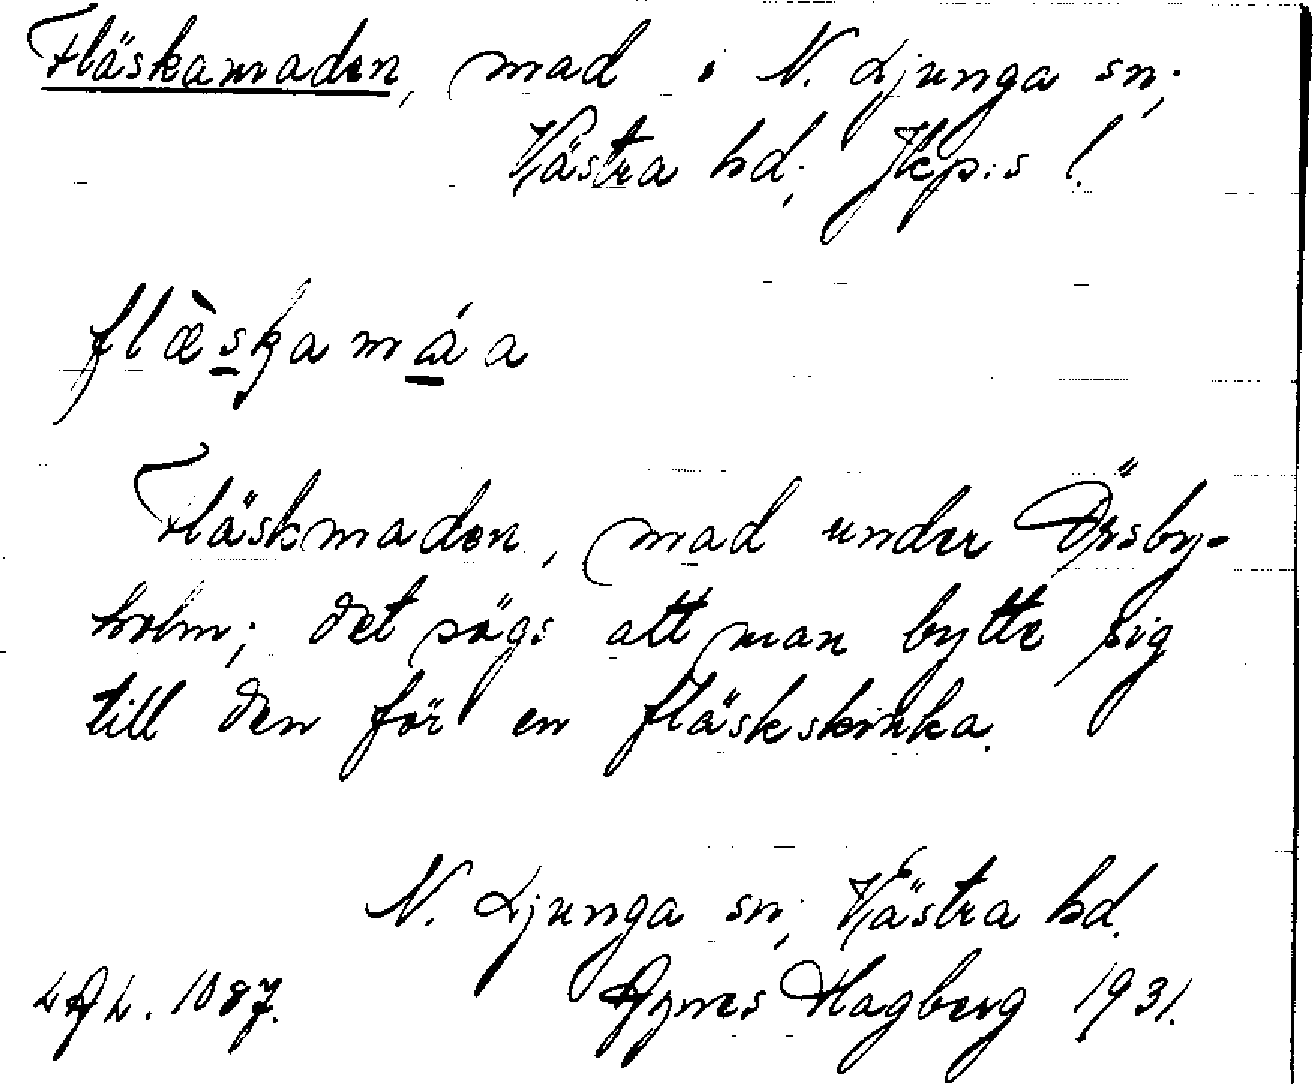 Fläskamaden, mad i N. Ljunga sn;
Västra hd; Jkp:s l.
flæ̀skamáa
Fläskmaden, mad under Örsby-
holm; det sägs att man bytte sig
till den för en fläskskinka.
N. Ljunga sn; Västra hd.
LAL. 1087. Agnes Hagberg 1931.